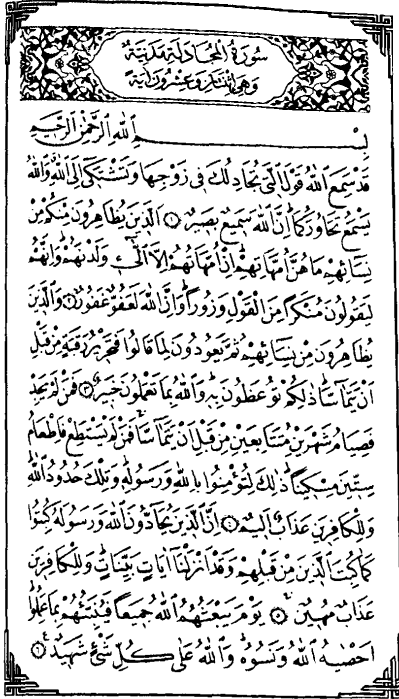 سُورَةُ الْمُجَادَلَةِ مَدَنِيَّةٌ
وَهِيَ اثْنَتَانِ وَعِشْرُونَ آيَةً
بِسْمِ اللّٰهِ الرَّحْمٰنِ الرَّحِيمِ
قَدْ سَمِعَ اللّٰهُ قَوْلَ الَّتِي تُجَادِلُكَ فِي زَوْجِهَا وَتَشْتَكِي إِلَى اللّٰهِ وَاللّٰهُ
يَسْمَعُ تَحَاوُرَكُمَا إِنَّ اللّٰهَ سَمِيعٌ بَصِيرٌ ١ الَّذِينَ يُظَاهِرُونَ مِنْكُمْ مِنْ
نِسَائِهِمْ مَا هُنَّ أُمَّهَاتِهِمْ إِنْ أُمَّهَاتُهُمْ إِلَّا اللَّائِي وَلَدْنَهُمْ وَإِنَّهُمْ
لَيَقُولُونَ مُنْكَرًا مِنَ الْقَوْلِ وَزُورًا وَإِنَّ اللّٰهَ لَعَفُوٌّ غَفُورٌ ٢ وَالَّذِينَ
يُظَاهِرُونَ مِنْ نِسَائِهِمْ ثُمَّ يَعُودُونَ لِمَا قَالُوا فَتَحْرِيرُ رَقَبَةٍ مِنْ قَبْلِ
أَنْ يَتَمَاسَّا ذٰلِكُمْ تُوعَظُونَ بِهِ وَاللّٰهُ بِمَا تَعْمَلُونَ خَبِيرٌ ٣ فَمَنْ لَمْ يَجِدْ
فَصِيَامُ شَهْرَيْنِ مُتَتَابِعَيْنِ مِنْ قَبْلِ أَنْ يَتَمَاسَّا فَمَنْ لَمْ يَسْتَطِعْ فَإِطْعَامُ
سِتِّينَ مِسْكِينًا ذٰلِكَ لِتُؤْمِنُوا بِاللّٰهِ وَرَسُولِهِ وَتِلْكَ حُدُودُ اللّٰهِ
وَلِلْكَافِرِينَ عَذَابٌ أَلِيمٌ ٤ إِنَّ الَّذِينَ يُحَادُّونَ اللّٰهَ وَرَسُولَهُ كُبِتُوا
كَمَا كُبِتَ الَّذِينَ مِنْ قَبْلِهِمْ وَقَدْ أَنْزَلْنَا آيَاتٍ بَيِّنَاتٍ وَلِلْكَافِرِينَ
عَذَابٌ مُهِينٌ ٥ يَوْمَ يَبْعَثُهُمُ اللّٰهُ جَمِيعًا فَيُنَبِّئُهُمْ بِمَا عَمِلُوا
أَحْصٰيهُ اللّٰهُ وَنَسُوهُ وَاللّٰهُ عَلٰى كُلِّ شَيْءٍ شَهِيدٌ ٦